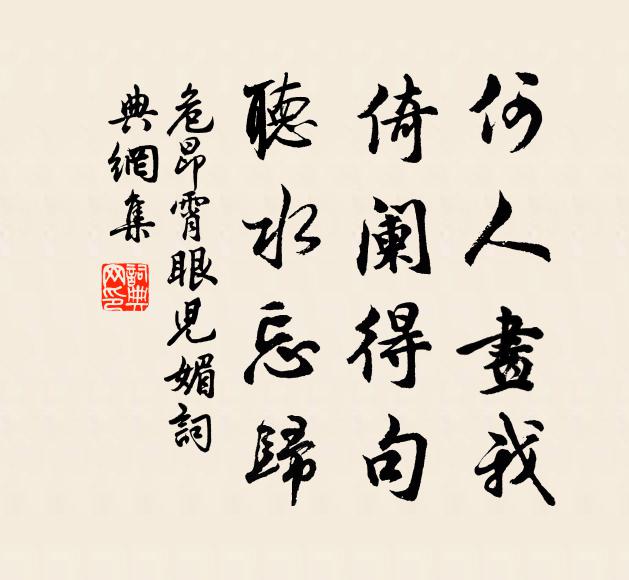 何人畫我
倚闌得句
聽水忘歸
危昂霄眼兒媚詞
典網集
詞典网印